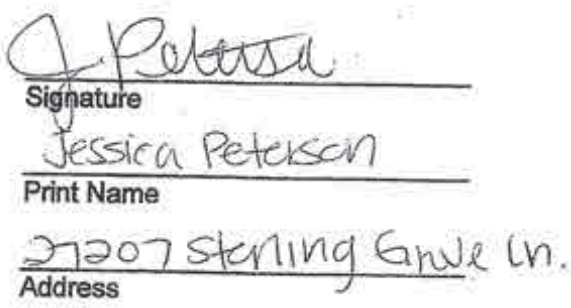 J. Peterson
Signature
Jessica Peterson
Print Name
27207 Sterling Grove Ln.
Address